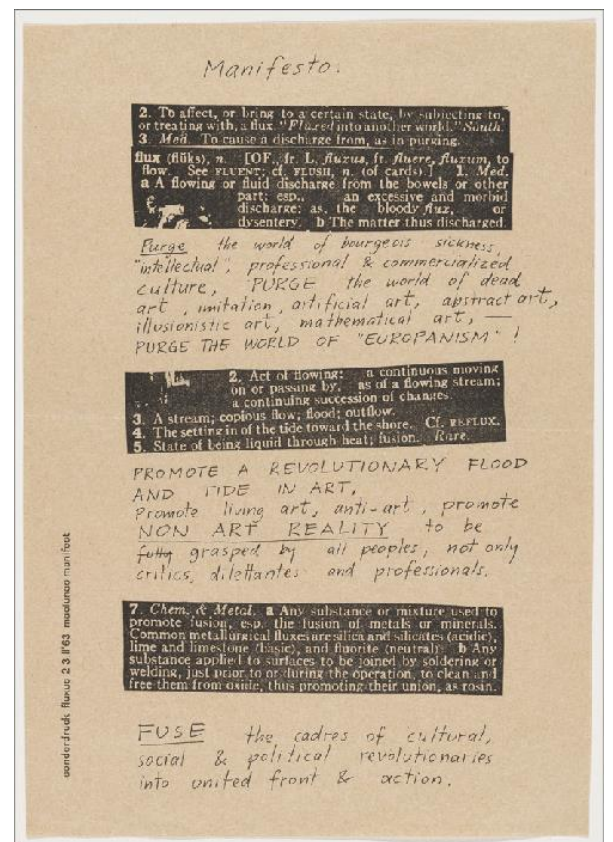 Manifesto:
2. To affect, or bring to a certain state, by subjecting to,
or treating with, a flux. "Fluxed into another world." South.
3. Med. To cause a discharge from, as in purging.
flux (flŭks), n. [OF., fr. L. fluxus, fr. fluere, fluxum, to
flow. See FLUENT; cf. FLUSH, n. (of cards).] 1. Med.
a A flowing or fluid discharge from the bowels or other
part; esp., an excessive and morbid
discharge: as, the bloody flux, or
dysentery. b The matter thus discharged.
Purge the world of bourgeois sickness,
"intellectual", professional & commercialized
culture, PURGE the world of dead
art, imitation, artificial art, abstract art,
illusionistic art, mathematical art, —
PURGE THE WORLD OF "EUROPANISM"!
2. Act of flowing: a continuous moving
on or passing by, as of a flowing stream;
a continuing succession of changes.
3. A stream; copious flow; flood; outflow.
4. The setting in of the tide toward the shore. Cf. REFLUX.
5. State of being liquid through heat; fusion. Rare.
PROMOTE A REVOLUTIONARY FLOOD
AND TIDE IN ART,
Promote living art, anti-art, promote
NON ART REALITY to be
fully grasped by all peoples, not only
critics, dilettantes and professionals.
7. Chem. & Metal. a Any substance or mixture used to
promote fusion, esp. the fusion of metals or minerals.
Common metallurgical fluxes are silica and silicates (acidic),
lime and limestone (basic), and fluorite (neutral). b Any
substance applied to surfaces to be joined by soldering or
welding, just prior to or during the operation, to clean and
free them from oxide, thus promoting their union, as rosin.
FUSE the cadres of cultural,
social & political revolutionaries
into united front & action.
2 3 II'63